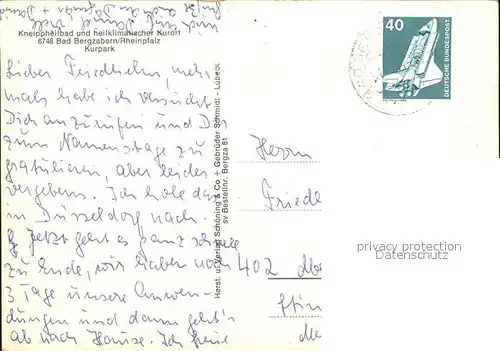 Kneippheilbad und heilklimatischer Kurort
6748 Bad Bergzabern/Rheinpfalz
Kurpark
Lieber Friedhelm, mehr-
mals habe ich versucht
Dich anzurufen und Dir
zum Namenstage zu
gratulieren, aber leider
vergebens. Ich hole das
in Düsseldorf nach.
Jetzt geht es ganz schnell
zu Ende, wir haben noch
3 Tage unsere Anwen-
dungen und dann geht's
ab nach Hause. Ich freue
Herst. u. Verlag Schöning & Co + Gebrüder Schmidt - Lübeck
sv Bestellnr. Bergza 61
40
DEUTSCHE BUNDESPOST
Herrn
Friede
402
privacy protection
Datenschutz